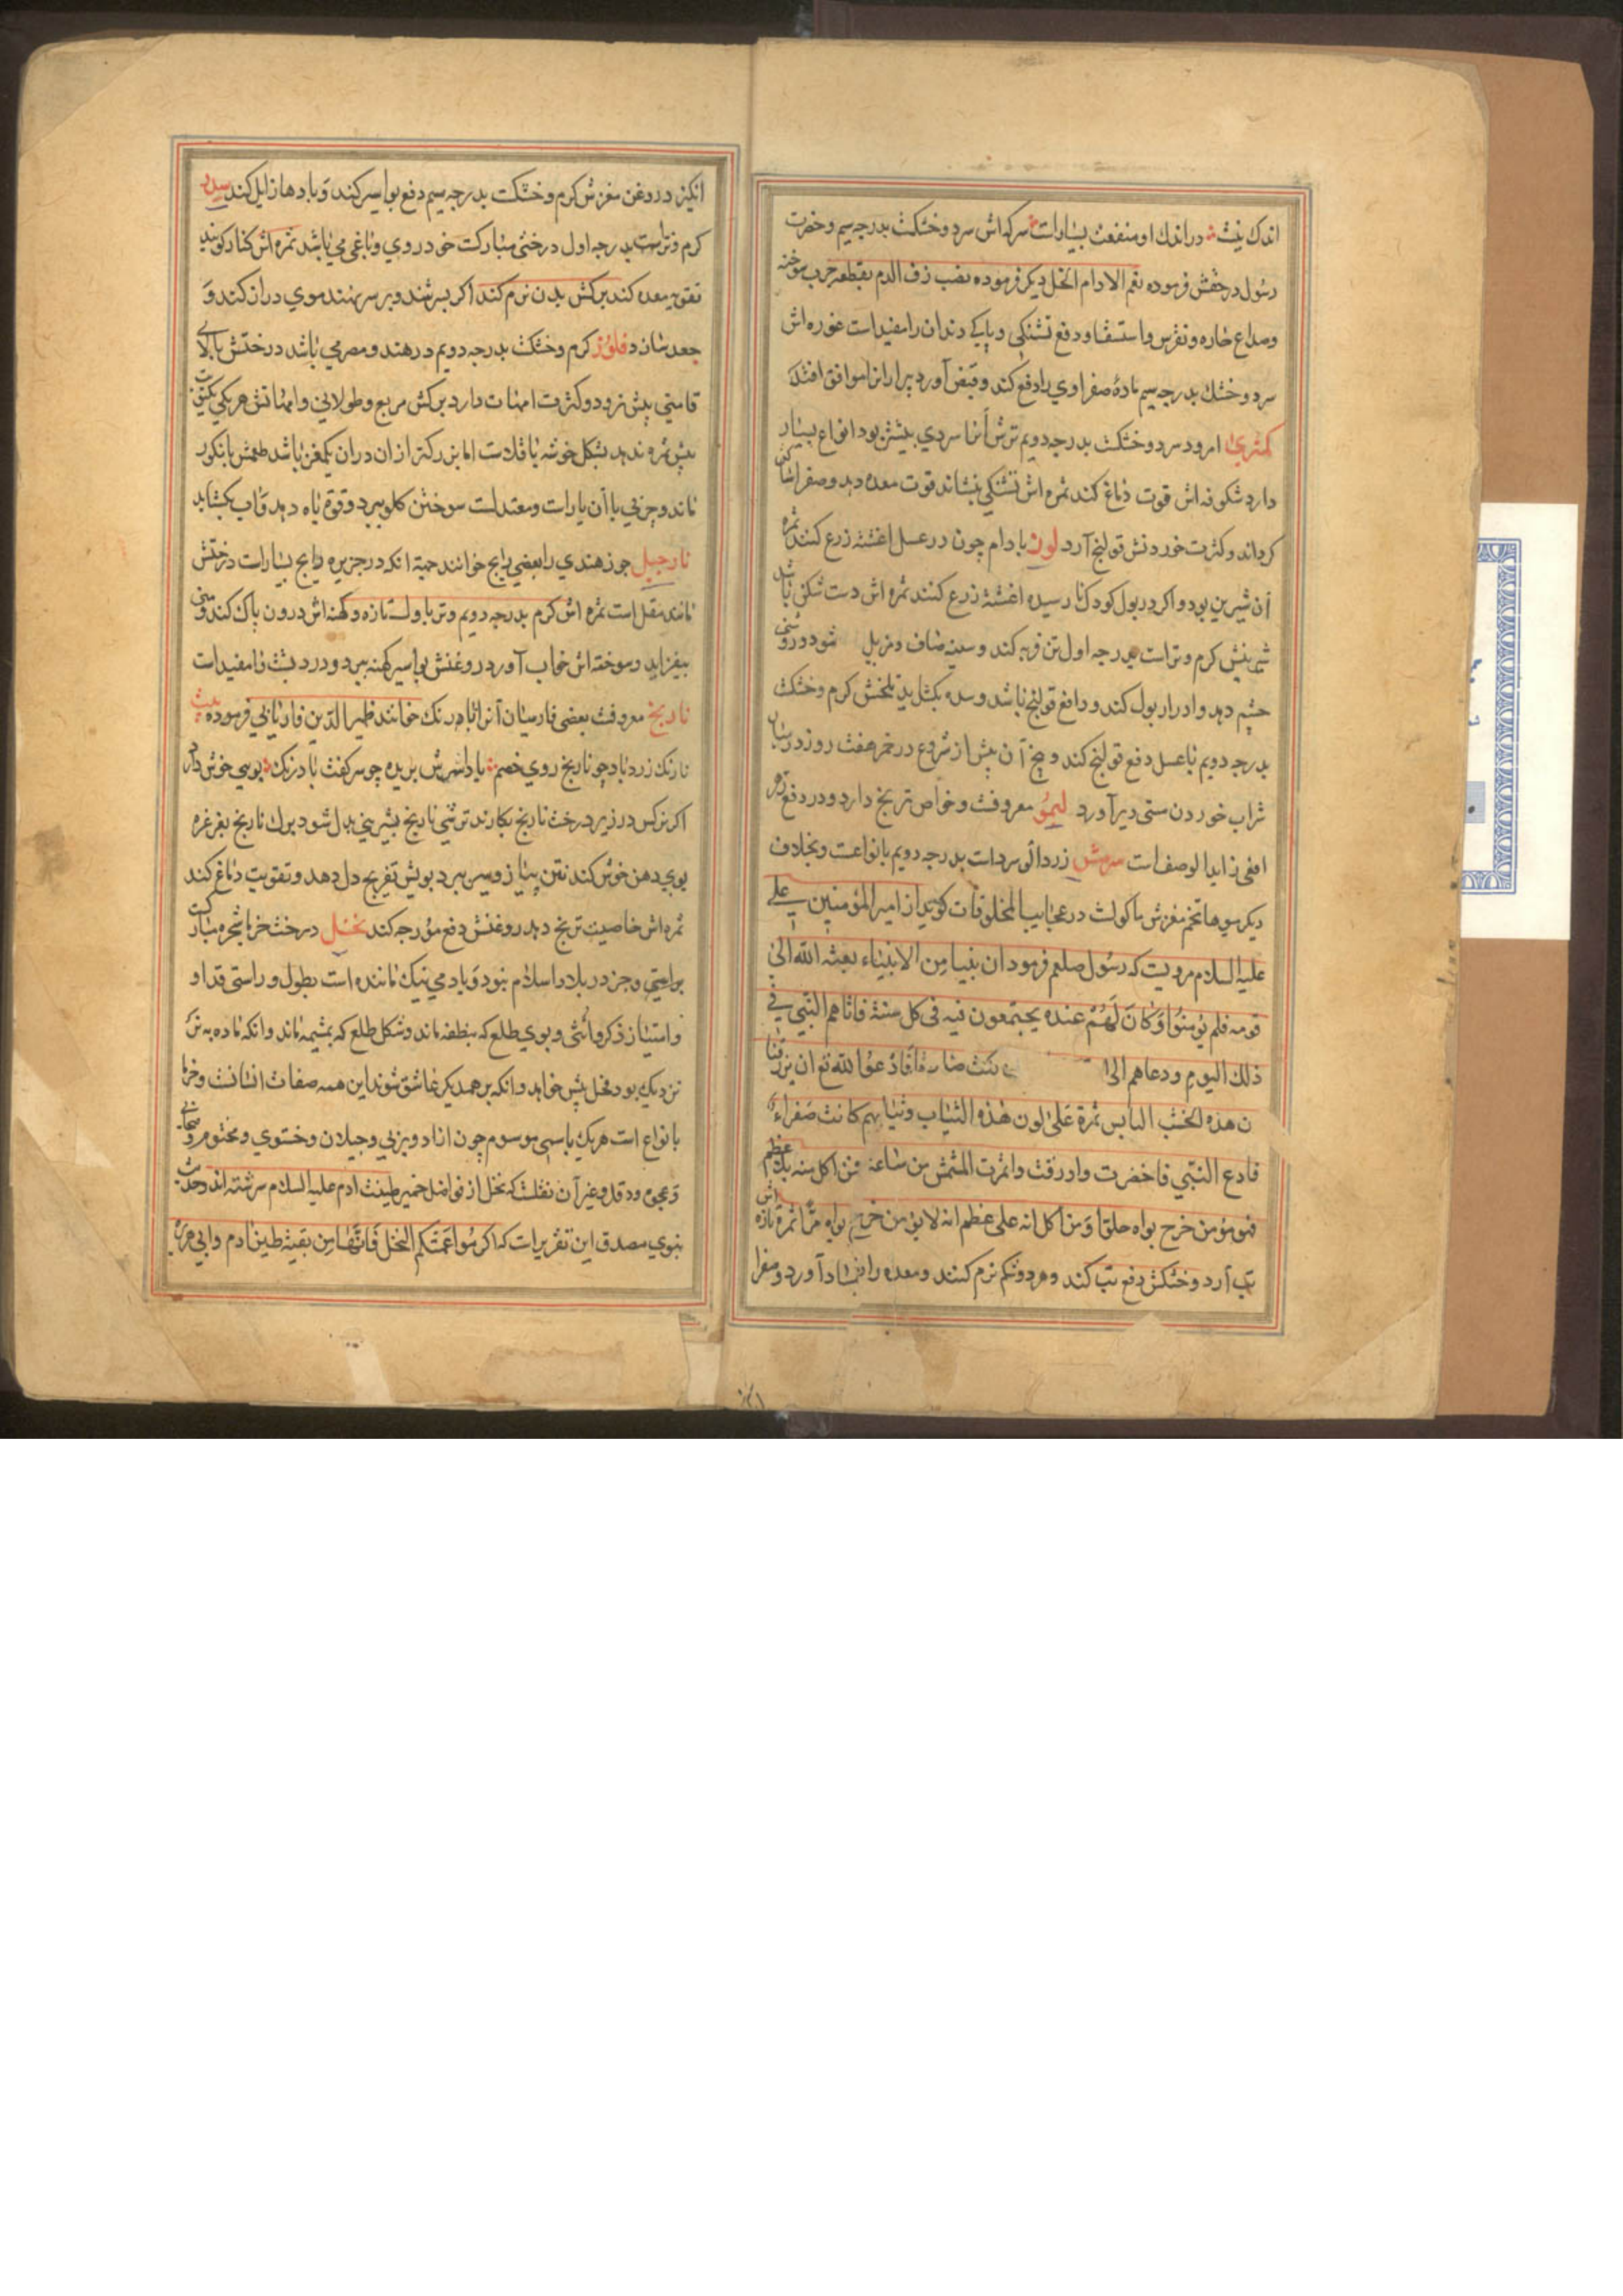 اندك نيت در اندك او منفعت بسيارات سركه اش سرد و خشكت بدرجه سيم و حضرت
رسول در حقش فرموده نعم الادام الخل ديكر فرموده نزف الدم بقطعه حرب سوخته
وصداع حاره ونقرس واستسقا ودفع تشنكى وپاكى دندان رامفيداست غوره اش
سرد وخشك بدرجه سيم مادهٔ صفراوي رادفع كند وقبض آورد پيرارانرا موافق افتد
كمثري امرود سرد وخشكت بدرجه دويم ترش انرا سردي بيشتر بود انواع بسيار
دارد شكوفه اش قوت دماغ كند ثمره اش تشنكى بنشاند قوت معده دهد وصفرا ساكن
كرداند وكثرت خوردنش قولنج آرد لوز بادام چون در عسل اغشته زرع كنند ثمره
آن شيرين بود واكر در بول كودك نارسيده اغشته زرع كنند ثمره اش دست شكن باشد
شيرينش كرم وتراست بدرجه اول تن فربه كند وسينه صاف ومزيل شود وروشنى
چشم دهد وادرار بول كند ودافع قولنج باشد وسده بكشايد تلخش كرم وخشكت
بدرجه دويم باعسل دفع قولنج كند و پنج آن پيش از شروع در خمر هفت روز در
شراب خوردن مستى دير آورد ليمو معروفت وخواص ترنج دارد ودر دفع زهر
افعى زايد الوصف است مشمش زردالو سردات بدرجه دويم بانواعت وبخلاف
ديكر ميوها تخم مغزش ماكولت در عجايب المخلوقات كويد از امير المؤمنين على
عليه السلام مرويت كه رسول صلعم فرمود ان نبيا من الانبياء بعثه الله الى
قومه فلم يؤمنوا وكان لهم عنده يجتمعون فيه فى كل سنة فاتاهم النبي في
ذلك اليوم ودعاهم الى كنت صادقا فادعوا لله تع ان يرزقنا
ن هذه الخشب اليابس ثمرة على لون هذه الثياب وثيابهم كانت صفراء
فادع النبي فاخضرت واورقت واثمرت المشمش من ساعة فمن اكل منه بلا عظم
فهو مؤمن خرج نواه حلوا ومن اكل انه على عظم انه لايؤمن خرج نواه مرا ثمرهٔ تازه اش
تب آرد وخشكش دفع تب كند وهر دو شكم نرم كنند ومعده را فساد آورد ومغزا
انكيزد روغن مغزش كرم وخشكت بدرجه سيم دفع بواسير كند وبادها زايل كند سدر
كرم وتراست بدرجه اول درختى مباركت خودروي وباغي مي باشد ثمره اش كنار كويند
تقويه معده كند بركش بدن نرم كند اكر بسرشند وبر سر نهند موي دراز كند و
جعد سازد فلوز كرم وخشكت بدرجه دويم در هند ومصر مي باشد درختش بالاي
قامتي بيش نرود وكثرت امهات دارد بركش مربع وطولاني وامهاتش هر يكي يكنوبت
بيش ثمره ندهد بشكل خوشه باقلات اما بزركتر از ان دران يكمغز باشد طعمش بانكور
ماند وچربي با آن يارات ومعتدلست سوختن كلو ببرد وقوة باه دهد وآب بكشايد
نارجيل جوز هندي را بعضي رانج خوانند جهة انكه در جزيره رانج بسيارات درختش
مانند مقل است ثمره اش كرم بدرجه دويم وتر باولست تازه وكهنه اش درون پاك كند ومني
بيفزايد وسوخته اش خواب آورد روغنش بواسير كهنه ببرد ودرد پشت را مفيدات
نارنج معروفت بعضى فارسيان آنرا بادرنك خوانند ظهير الدين فاريابي فرموده بيت
نارنك زرد باد چو نارنج روي خصم بادا سرش بريده چو سر كفت بادرنك بوي خوش دارد
اكر نركس در زير درخت نارنج بكارند ترشي نارنج بشيريني بدل شود برك نارنج بغرغره
بوي دهن خوش كند نتن پياز وسير ببرد بويش تفريح دل دهد وتقويت دماغ كند
ثمره اش خاصيت ترنج دهد روغنش دفع مورچه كند نخل درخت خرما شجره مباركت
براستي وجز در بلاد اسلام نبود وبادمي نيك ماننده است بطول وراستى قد او
وامتياز ذكر وانثى وبوي طلع كه بنطفه ماند وشكل طلع كه بمشيمه ماند وانكه ماده به نر
نزديك بود نخل بيش خواهد وانكه بر همديكر عاشق شوند اين همه صفات انسانت وخرما
بانواع است هر يك باسمى موسوم چون ازاد وبرني وجيلان وخستوي ومختوم
وعجوه ودقل وغير آن نقلست كه نخل از فواضل خمير طينت ادم عليه السلام سرشته اند وحديث
نبوي مصدق اين تقريرات كه اكرموا عمتكم النخل فانها من بقية طين ادم وابي هريره